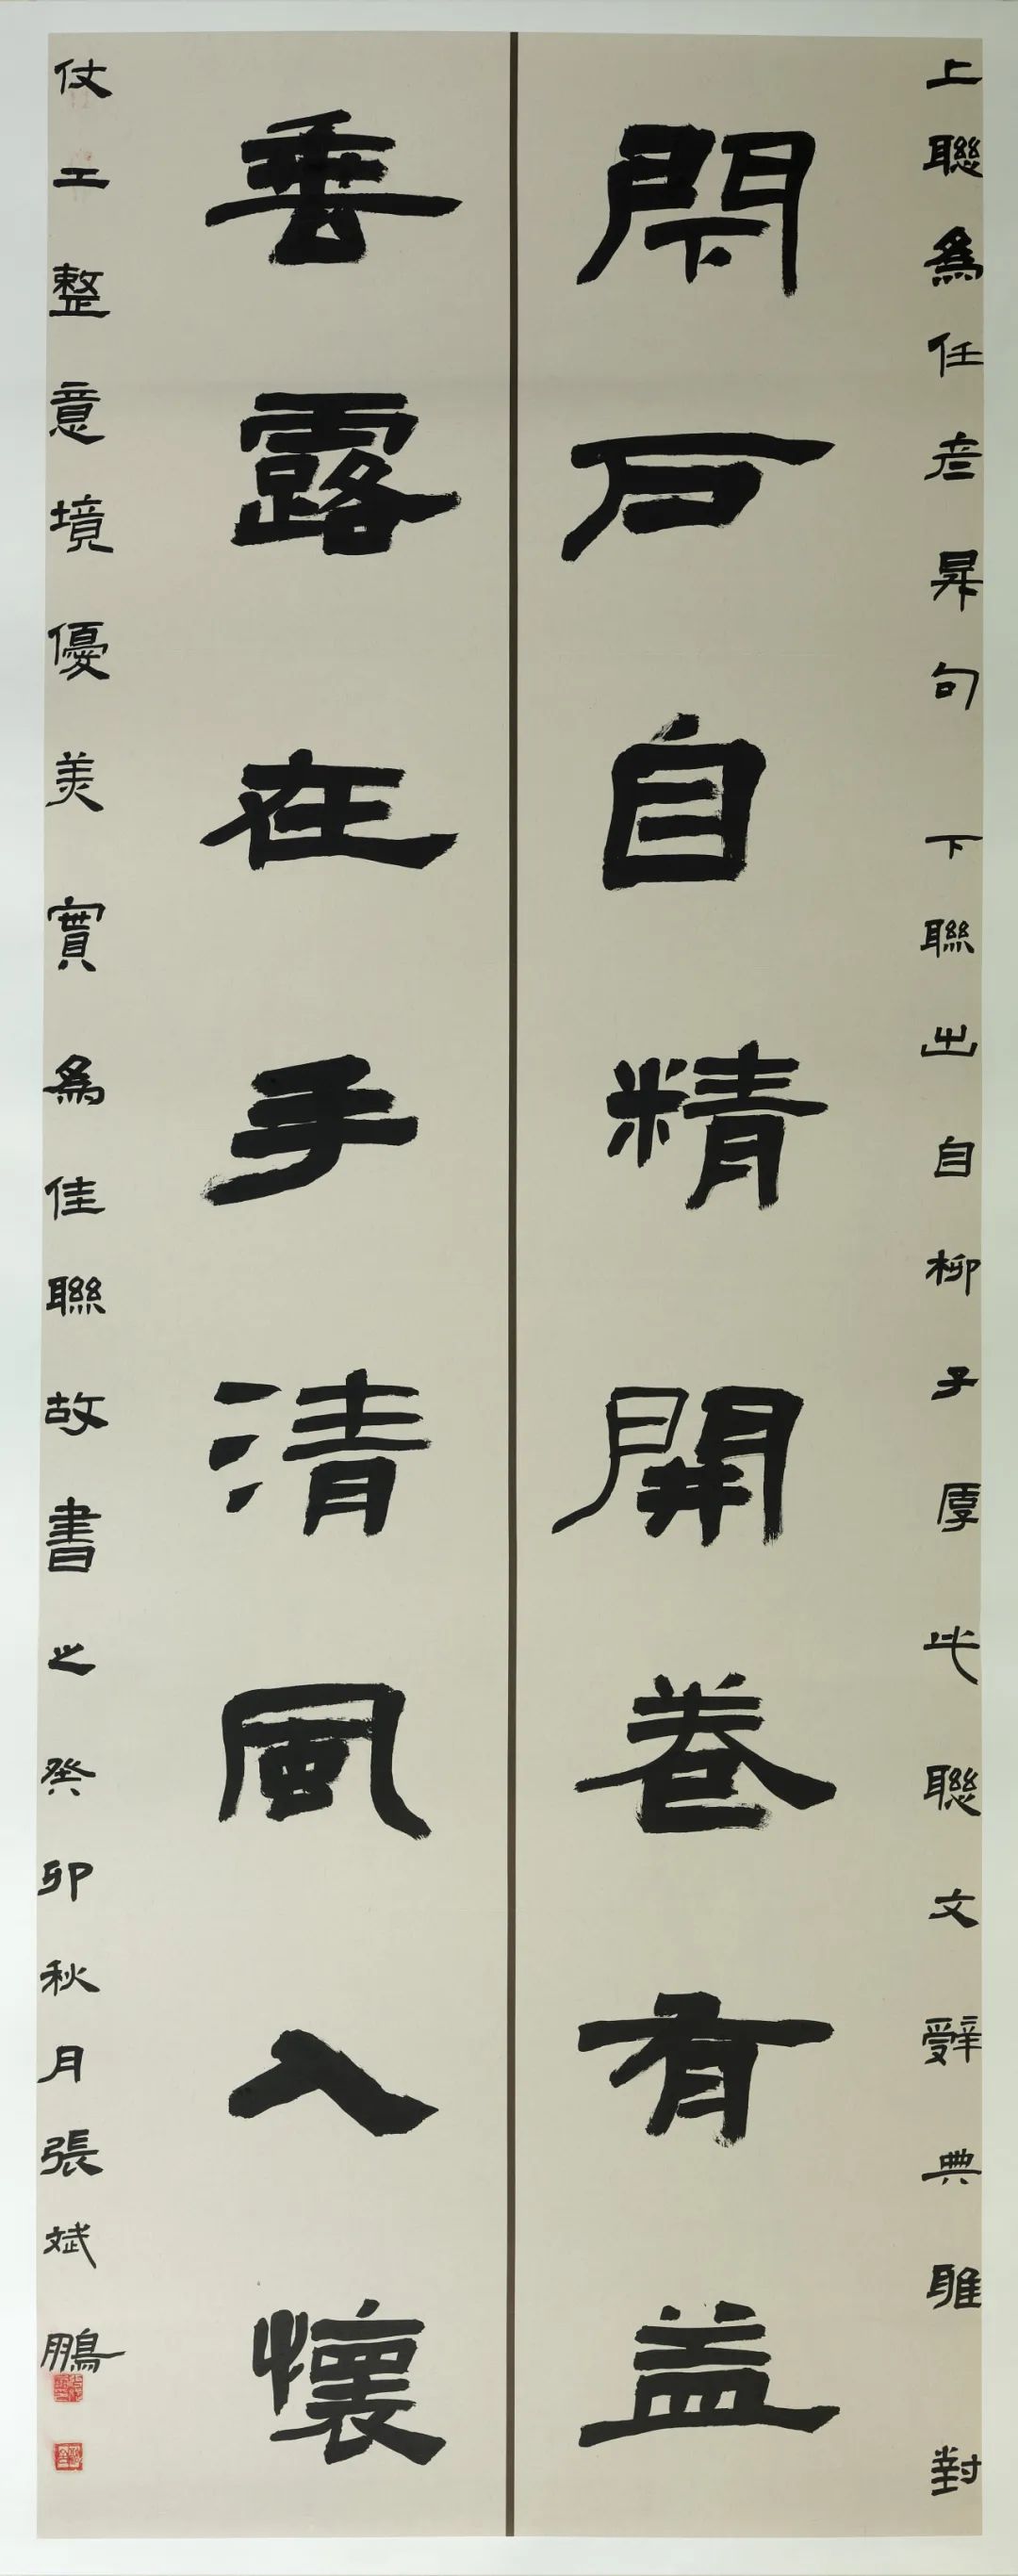 上聯爲任彦昇句下聯出自柳子厚此聯文辭典雅對
閇户自精開卷有益
垂露在手清風入懷
仗工整意境優美實爲佳聯故書之癸卯秋月張斌鵬